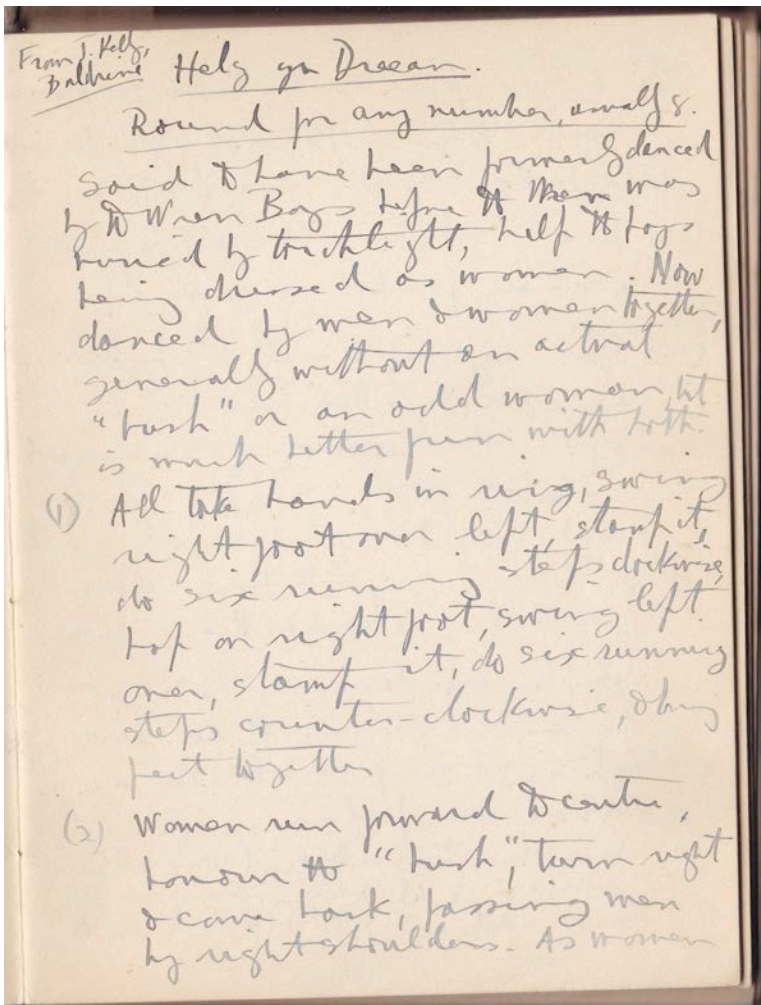 From J. Kelly,
Baldrine
Helg yn Dreean.
Round for any number, usually 8.
Said to have been formerly danced
by the Wren Boys before the Wren was
buried by torchlight, half the boys
being dressed as women. Now
danced by men & women together,
generally without an actual
"bush" or an odd woman, but
is much better fun with both.
(1) All take hands in ring, swing
right foot over left, stamp it,
do six running steps clockwise,
hop on right foot, swing left
over, stamp it, do six running
steps counter-clockwise, & bring
feet together
(2) Women run forward to centre,
honour the "bush", turn right
& come back, passing men
by right shoulders. As women